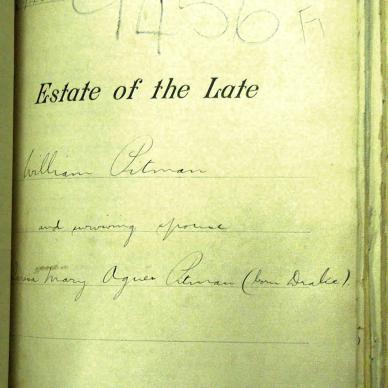 9456 F1
Estate of the Late
William Pitman
and surviving spouse
Mary Agnes Pitman (born Drake).